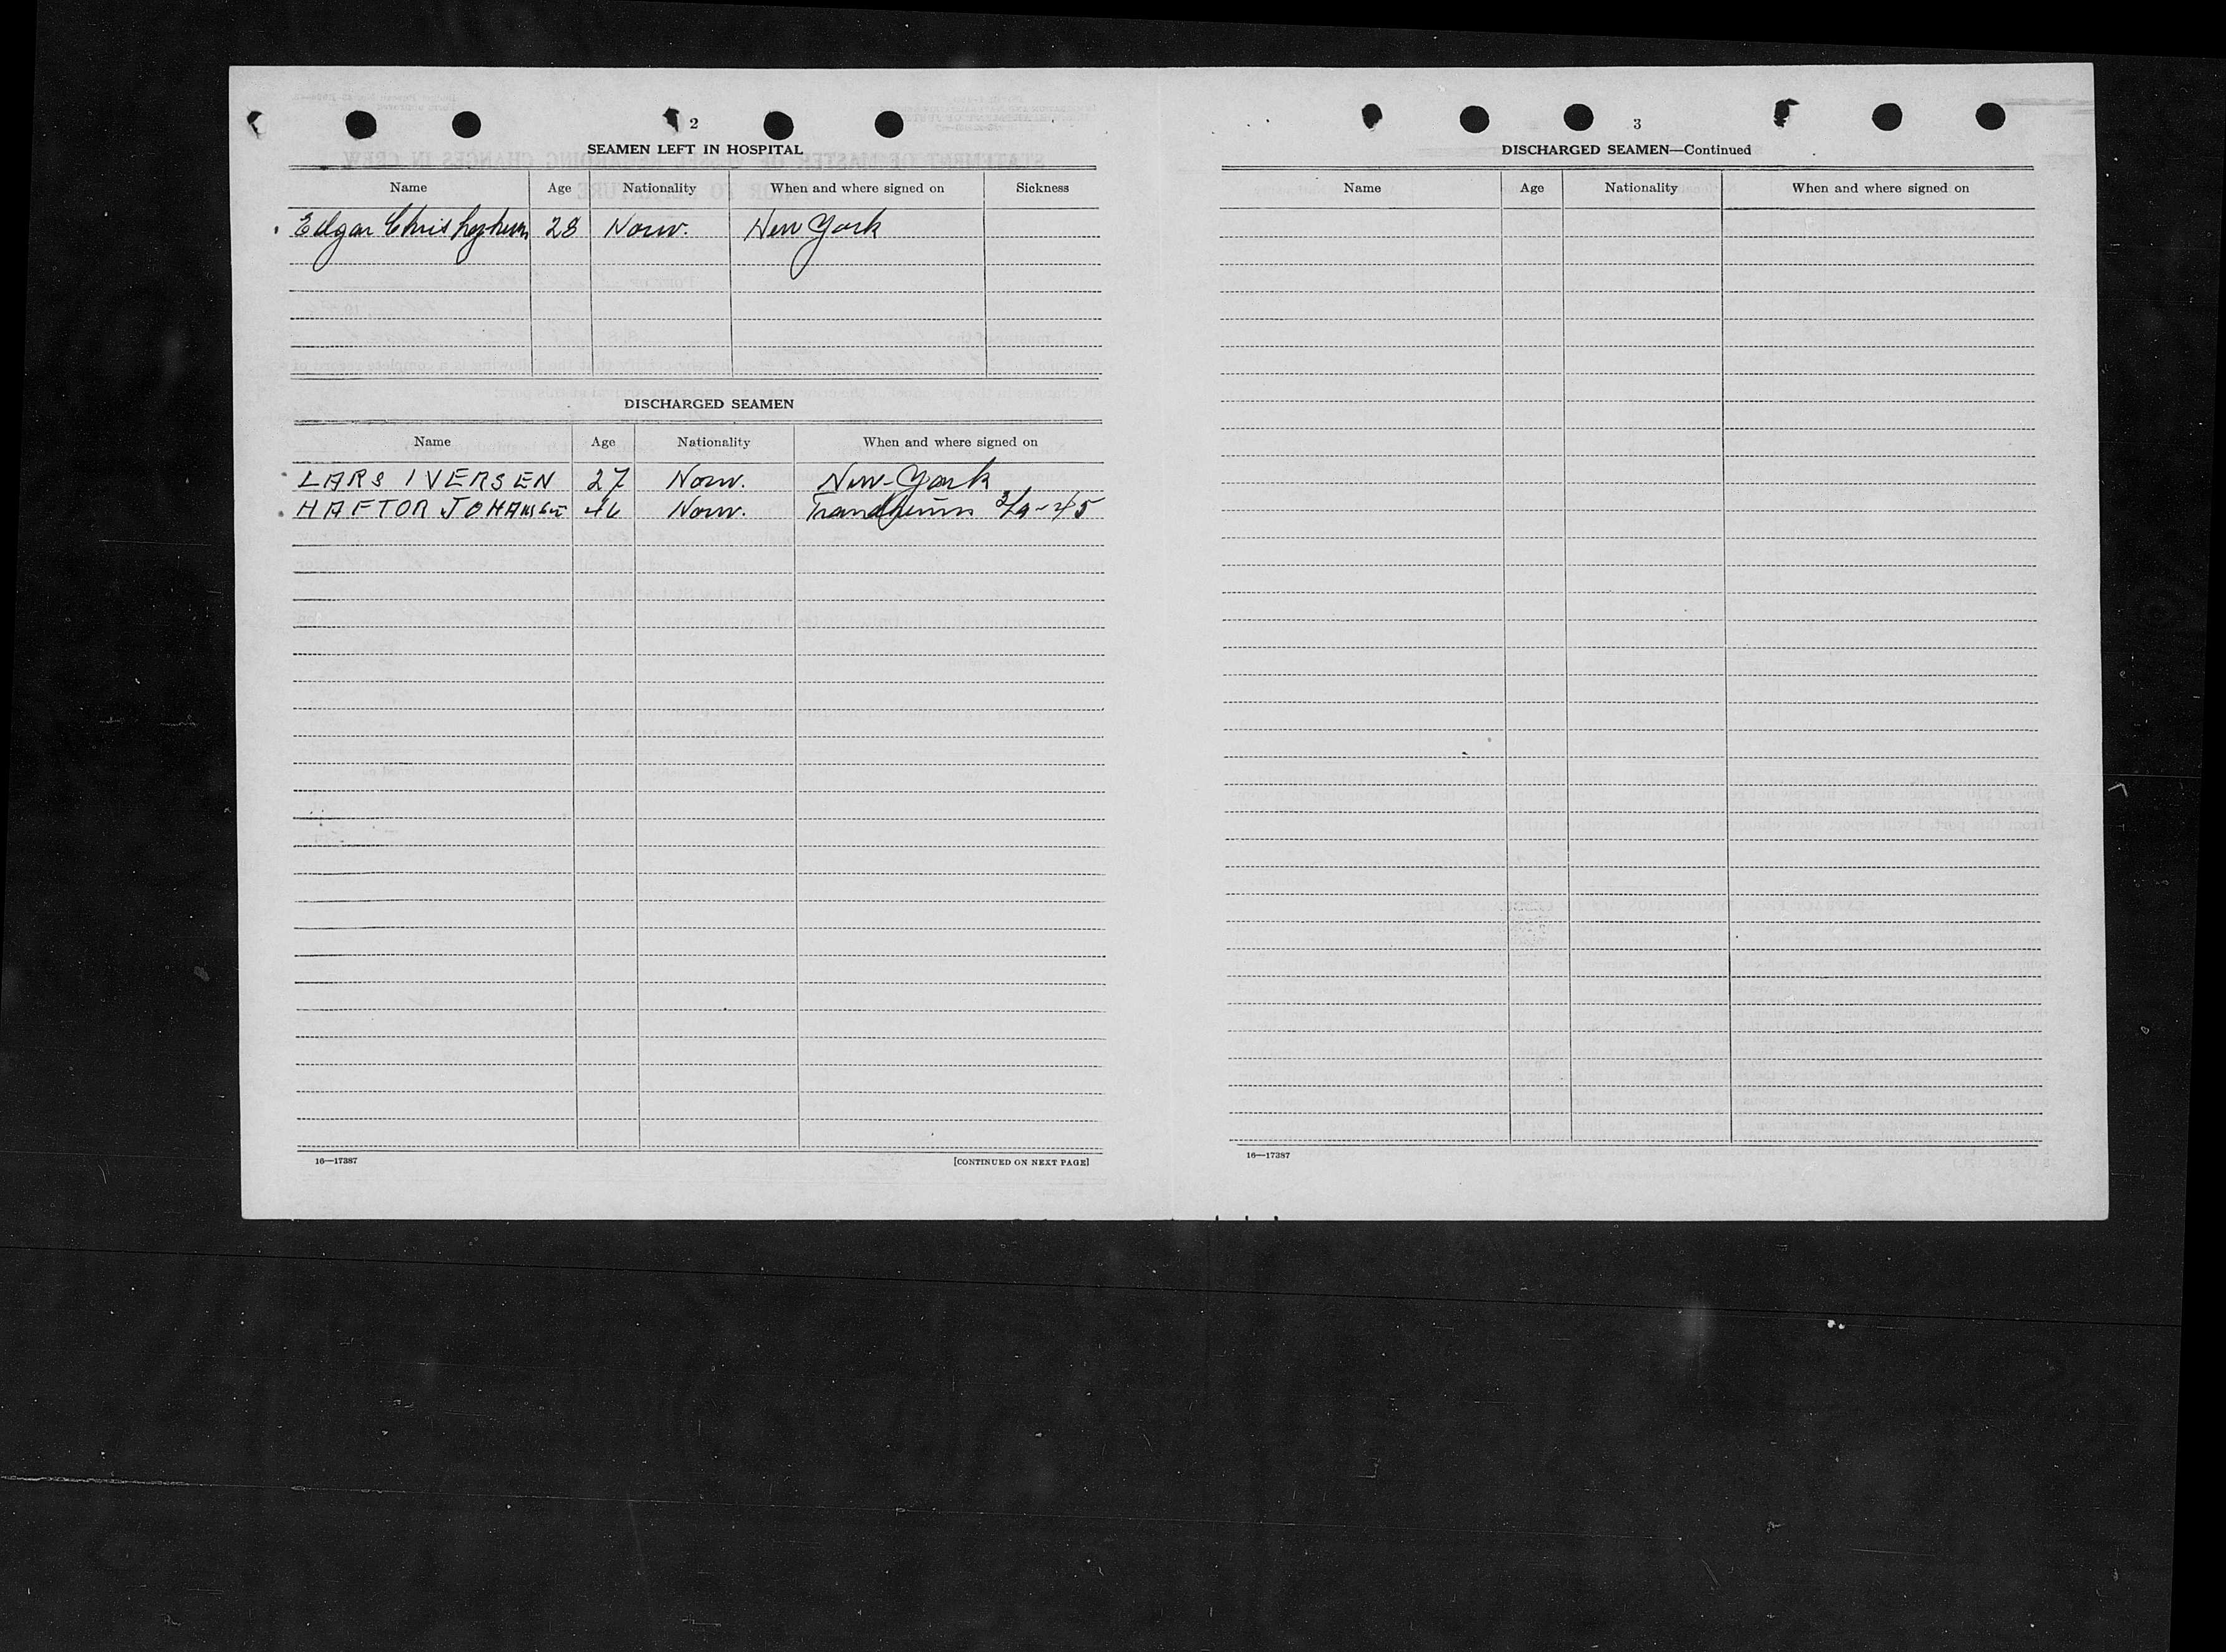 2
SEAMEN LEFT IN HOSPITAL
Name Age Nationality When and where signed on Sickness
Edgar 28 Norw. New York
DISCHARGED SEAMEN
Name Age Nationality When and where signed on
LARS IVERSEN 27 Norw. New-York
HAFTOR JOHANSEN 46 Norw. Trondheim 3/9-45
16—17387 [CONTINUED ON NEXT PAGE]
3
DISCHARGED SEAMEN—Continued
Name Age Nationality When and where signed on
16—17387